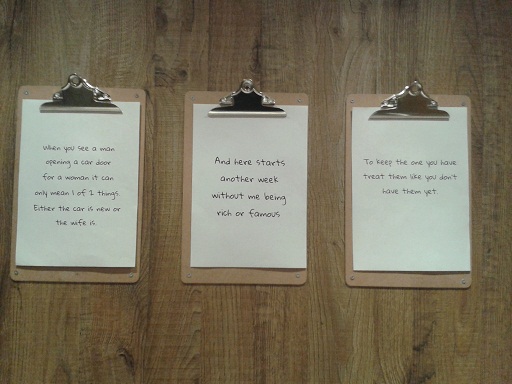 When you see a man
opening a car door
for a woman it can
only mean 1 of 2 things.
Either the car is new or
the wife is.
And here starts
another week
without me being
rich or famous
To keep the one you have
treat them like you don't
have them yet.